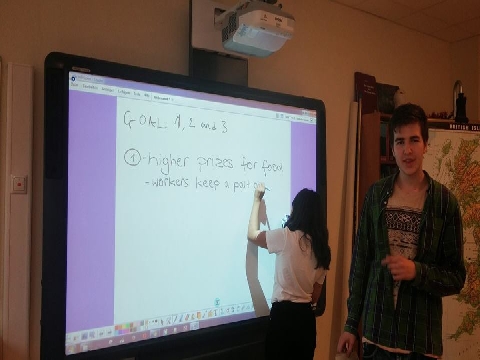 GOAL 1, 2 and 3
① -higher prizes for food
-workers keep a part o
BRITISH ISL